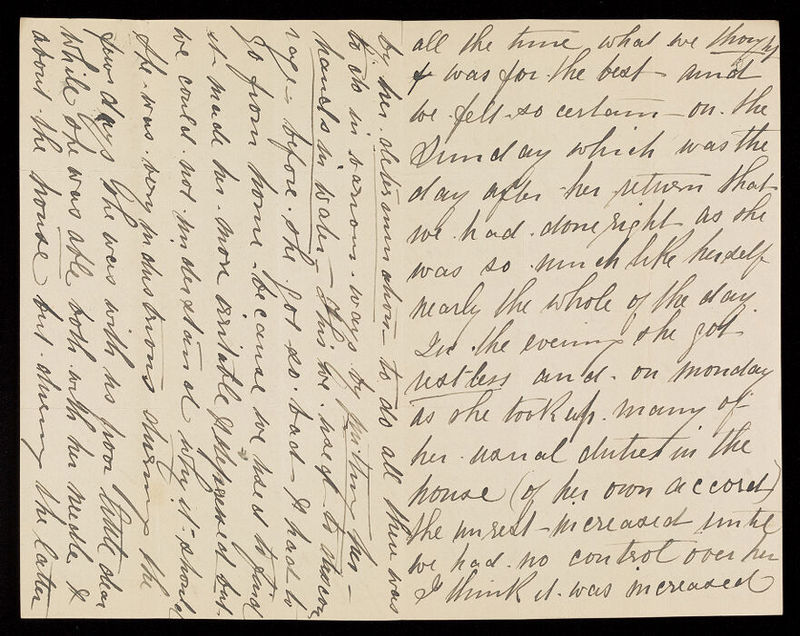 all the time what we thought
& was for the best and
we felt so certain - on the
Sunday which was the
day after her return that
we had done right as she
was so much like herself
nearly the whole of the day
In the evening she got
restless and on Monday
as she took up many of
her usual duties in the
house (of her own accord)
the unrest increased until
we had no control over her
I think it was increased
by her determination to do all there was
to do in various ways by putting her -
hands in water - This we used to encou
rage before she got so bad & had to
go from home - because we used to find
it made her more irritable & depressed but
we could not understand why it should
She was very industrious during the
few days she was with us poor little dear
while she was able both with her needle &
about the house but during the later